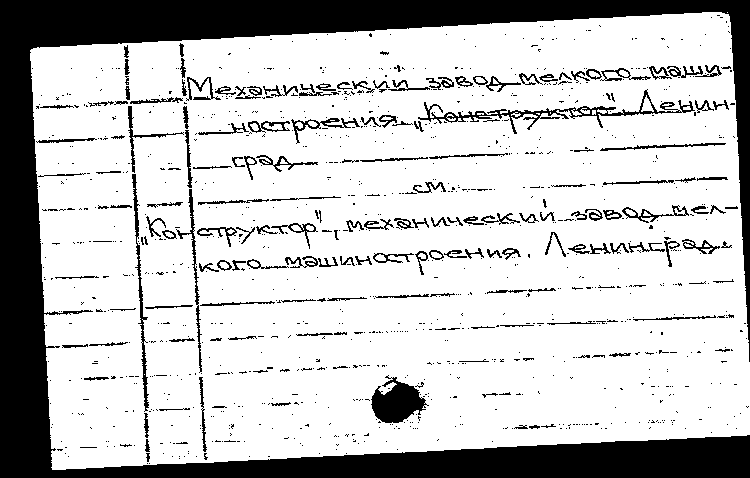 Механический завод мелкого маши-
ностроения „Конструктор". Ленин-
град
см.
„Конструктор", механический завод мел-
кого машиностроения. Ленинград.